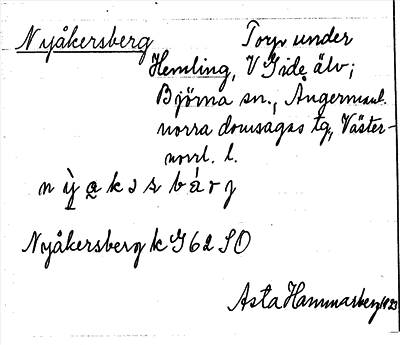 Nyåkersberg Torp under
Hemling, V Gide älv;
Björna sn., Ångermanl.
norra domsagas tg, Väster-
norrl. l.
Nyåkersberg k G 62 SO
Asta Hammarberg 1923